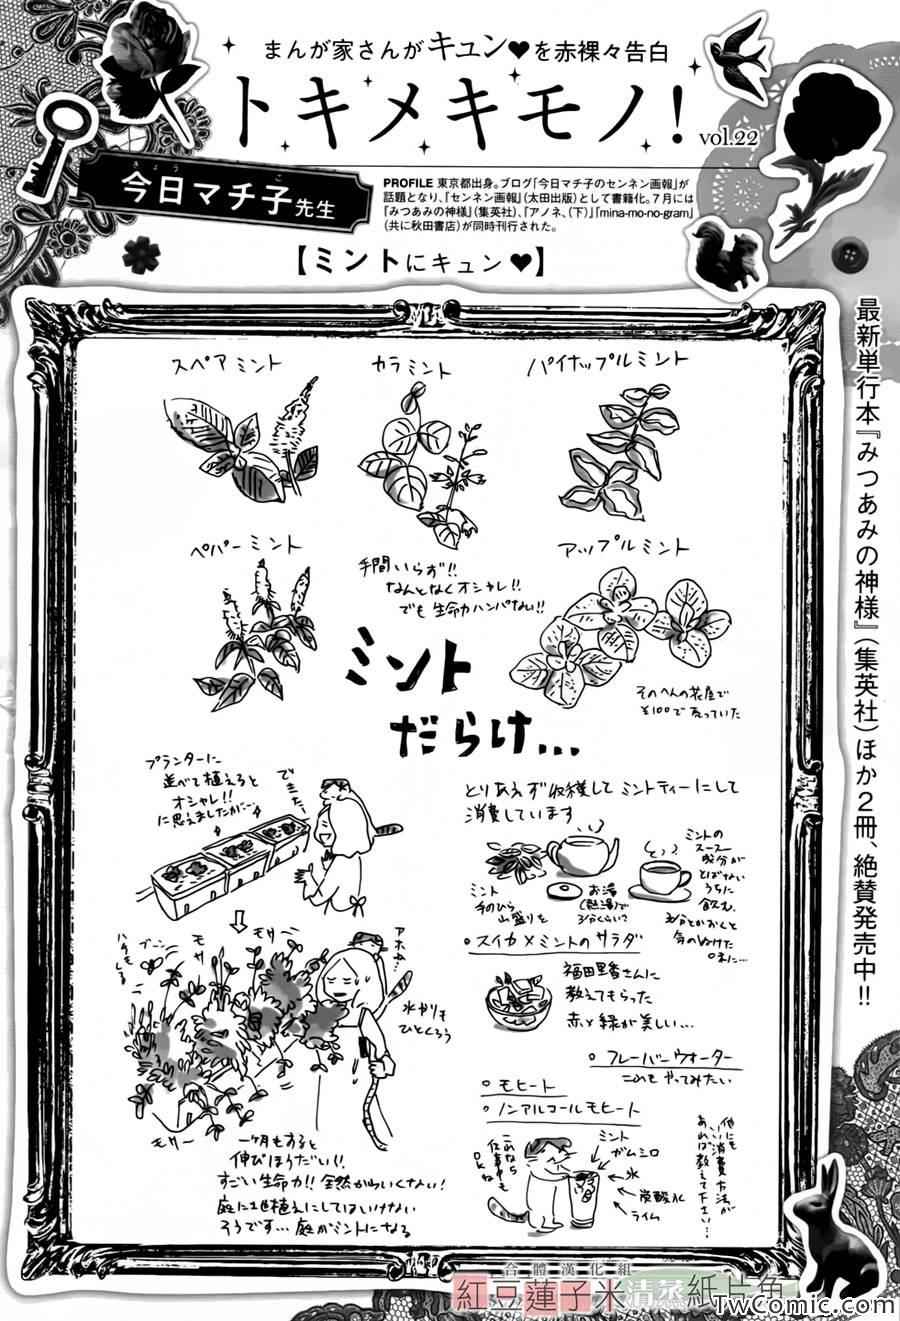 まんが家さんがキュン♥を赤裸々告白
トキメキモノ!
vol.22
きょう こ
今日マチ子先生
PROFILE 東京都出身。ブログ「今日マチ子のセンネン画報」が
話題となり、「センネン画報」(太田出版)として書籍化。7月には
『みつあみの神様』(集英社)、『アノネ、(下)』『mina-mo-no-gram』
(共に秋田書店)が同時刊行された。
【ミントにキュン♥】
最新単行本『みつあみの神様』(集英社)ほか2冊、絶賛発売中!!
スペアミント
カラミント
パイナップルミント
ペパーミント
手間いらず!!
なんとなくオシャレ!!
でも生命力ハンパない!!
アップルミント
そのへんの花屋で
¥100で売っていた
ミント
だらけ…
プランターに
並べて植えると
オシャレ!!
に思えましたが…
できた…
モサー
モサ
ブーン
ハチもくる
アホや…
水やりも
ひとくろう
モサー
一ヶ月もすると
伸びほうだい!!
すごい生命力!! 全然かわいくない!
庭に地植えにしてはいけない
そうです…庭がミントになる
とりあえず収穫してミントティーにして
消費しています
ミント
手のひら
山盛りを
お湯
(熱湯)で
3分くらい?
ミントの
スースー
成分が
とばない
うちに
飲む。
。スイカ×ミントのサラダ
福田里香さんに
教えてもらった
赤と緑が美しい…
。フレーバーウォーター
これもやってみたい
。モヒート
。ノンアルコールモヒート
これなら
仕事中も
OKね
ミント
ガムシロ
氷
炭酸水
ライム
他にも
いい消費方法が
あれば教えて下さい…
合體漢化組
紅豆蓮子米清蒸紙片魚
TwComic.com